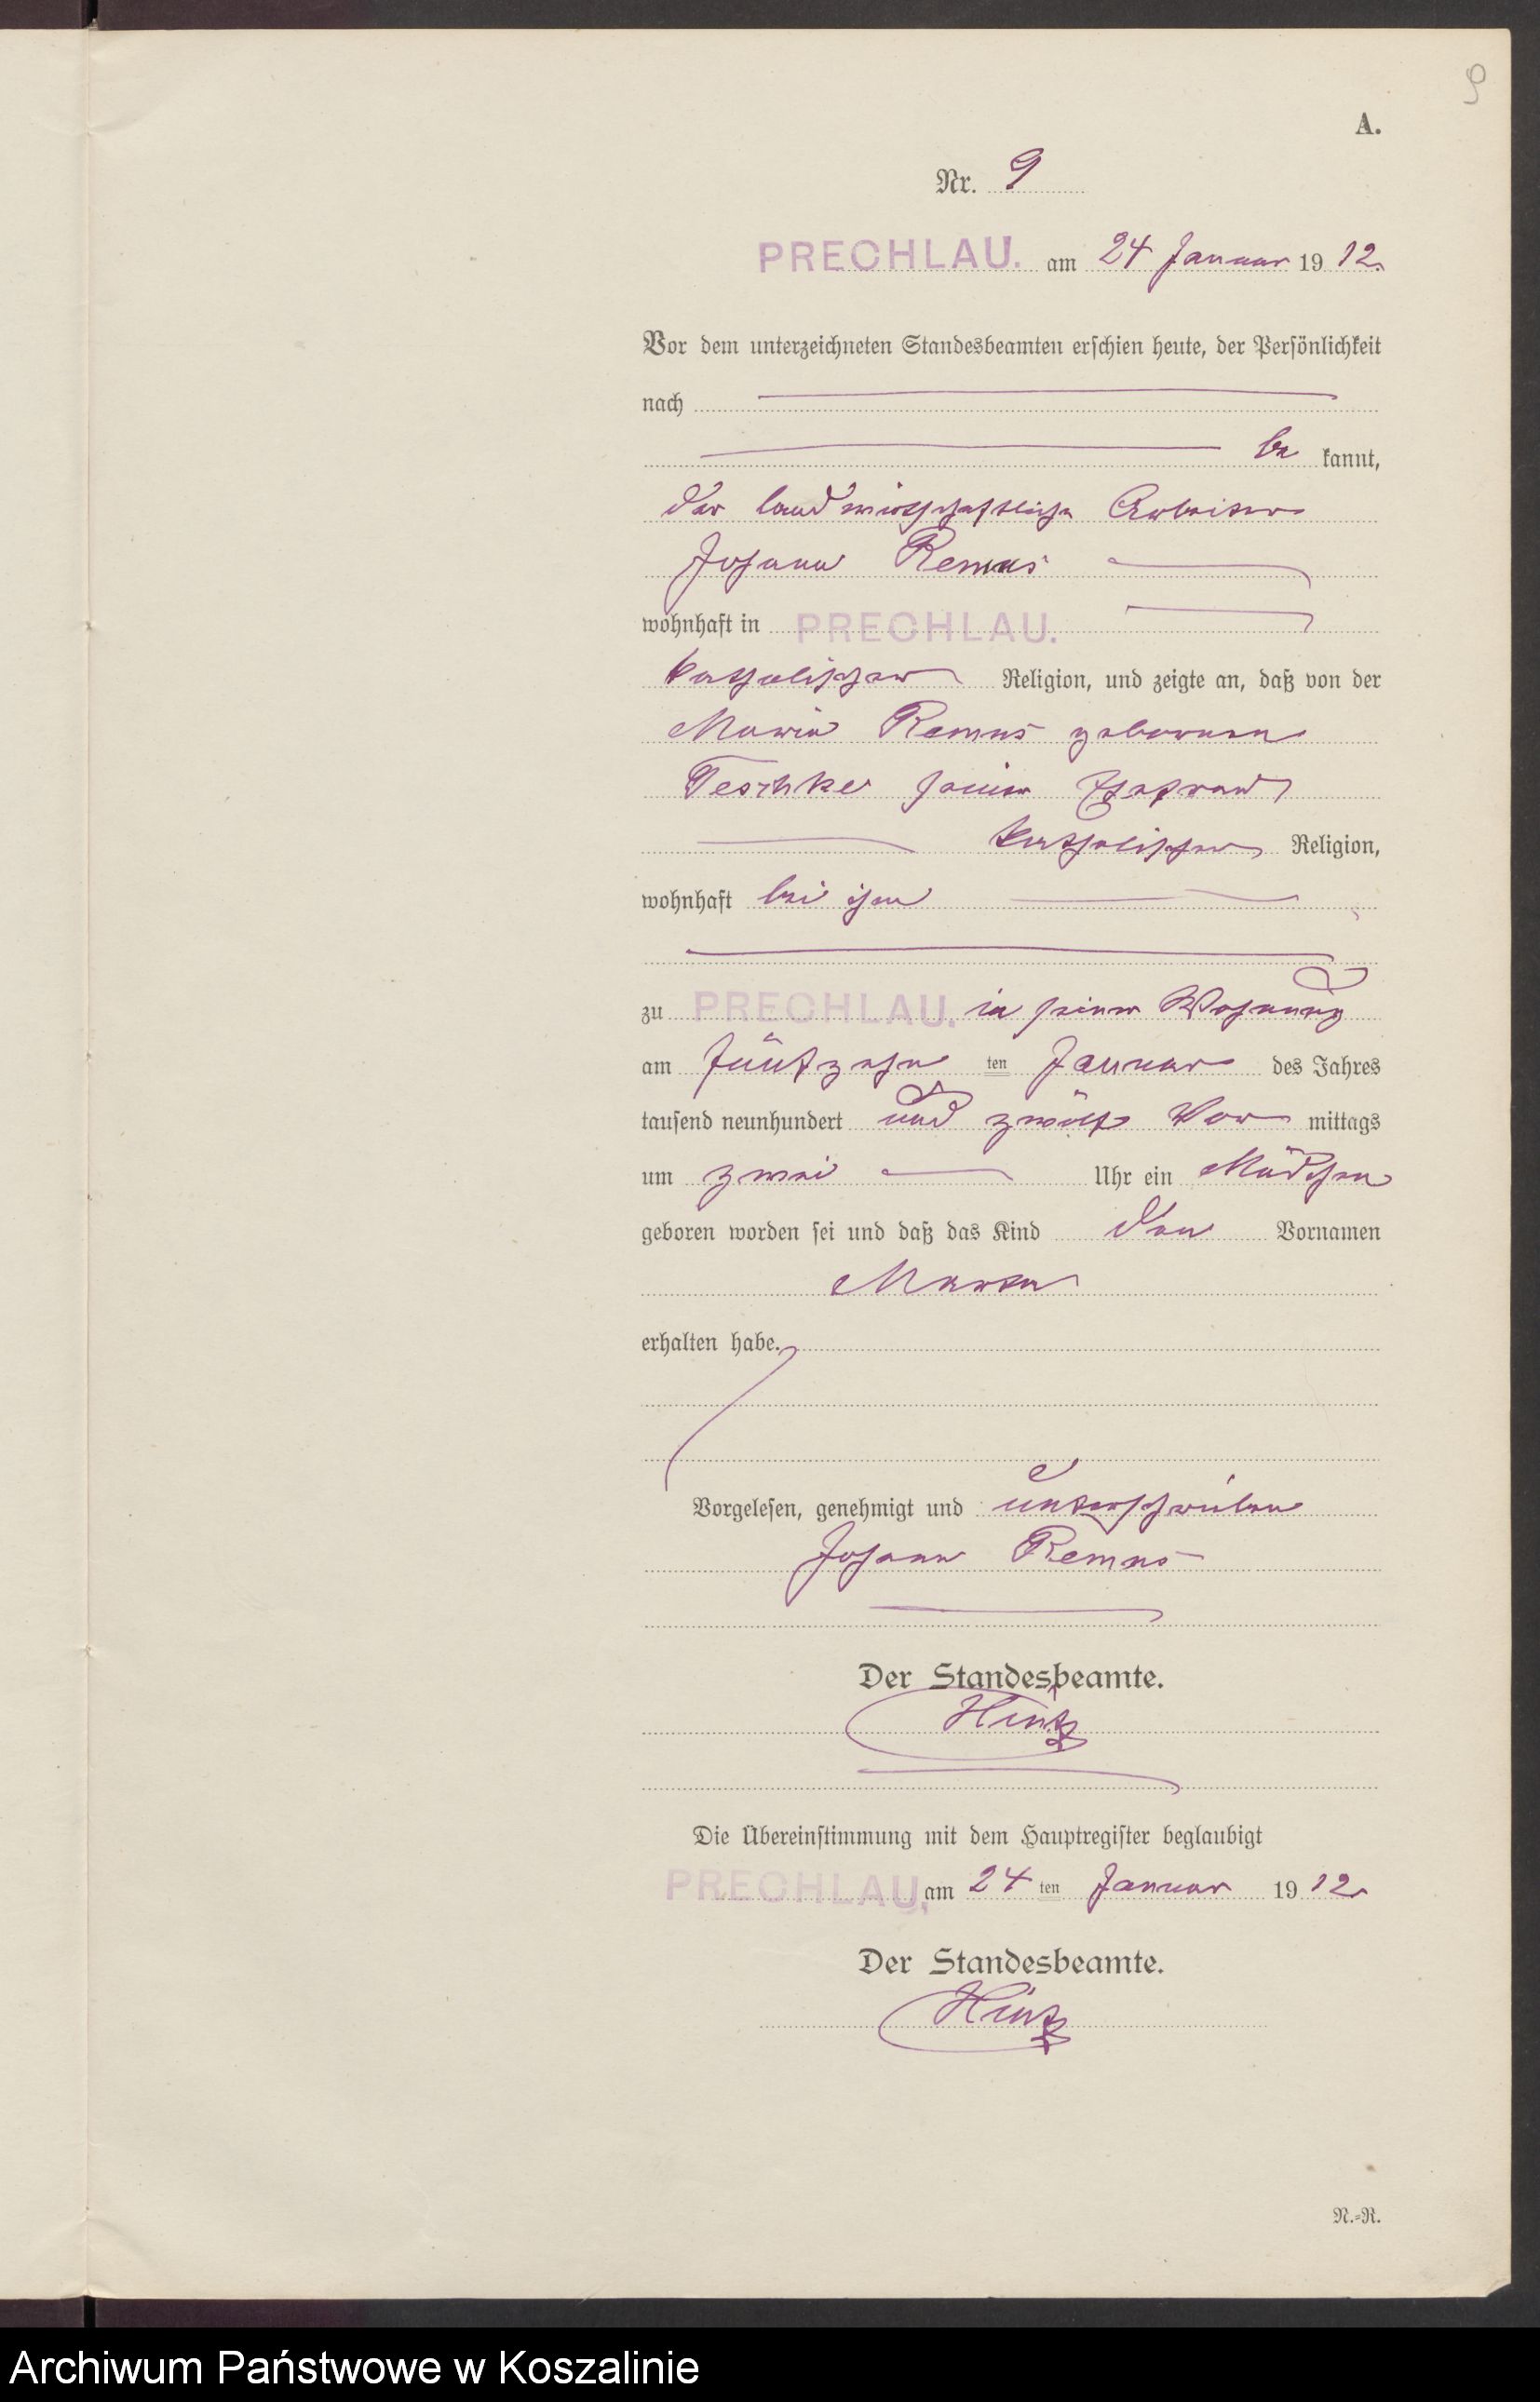 9
A.
Nr. 9
PRECHLAU. am 24 Januar 19 12.
Vor dem unterzeichneten Standesbeamten erschien heute, der Persönlichkeit
nach
be kannt,
der landwirthschaftliche Arbeiter
Johann Remus
wohnhaft in PRECHLAU.
katholischer Religion, und zeigte an, daß von der
Maria Remus geborenen
Teschke seiner Ehefrau
katholischer Religion,
wohnhaft bei ihm
zu PRECHLAU. in seiner Wohnung
am fünfzehn ten Januar des Jahres
tausend neunhundert und zwölf Vor mittags
um zwei Uhr ein Mädchen
geboren worden sei und daß das Kind den Vornamen
Marta
erhalten habe.
Vorgelesen, genehmigt und unterschrieben
Johann Remus
Der Standesbeamte.
Hintz
Die Übereinstimmung mit dem Hauptregister beglaubigt
PRECHLAU, am 24 ten Januar 19 12.
Der Standesbeamte.
Hintz
N.-R.
Archiwum Państwowe w Koszalinie